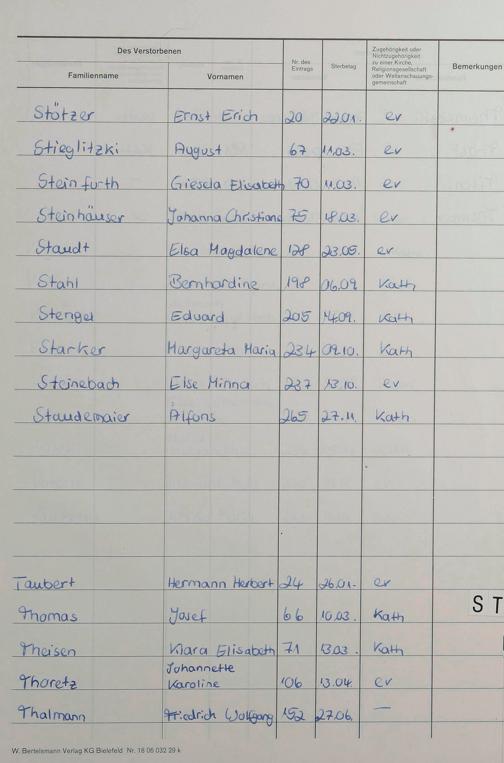 Des Verstorbenen
Familienname Vornamen Nr. des Eintrags Sterbetag Zugehörigkeit oder Nichtzugehörigkeit zu einer Kirche, Religionsgesellschaft oder Weltanschauungsgemeinschaft Bemerkungen
Stötzer Ernst Erich 20 22.01. ev
Stieglitzki August 67 11.03. ev
Steinfurth Giesela Elisabeth 70 11.03. ev
Steinhäuser Johanna Christiane 75 18.03. ev
Staudt Elsa Magdalene 128 23.05. ev
Stahl Bernhardine 198 06.09. Kath
Stengel Eduard 205 14.09. Kath
Starker Margareta Maria 234 09.10. Kath
Steinebach Else Minna 237 13.10. ev
Staudemaier Alfons 265 27.11. Kath
Taubert Hermann Herbert 24 26.01. ev
S T
Thomas Josef 66 10.03. Kath
Theisen Klara Elisabeth 71 13.03. Kath
Johannette
Thoretz Karoline 106 13.04. ev
Thalmann Friedrich Wolfgang 152 27.06. —
W. Bertelsmann Verlag KG Bielefeld Nr. 18 06 032 29 k